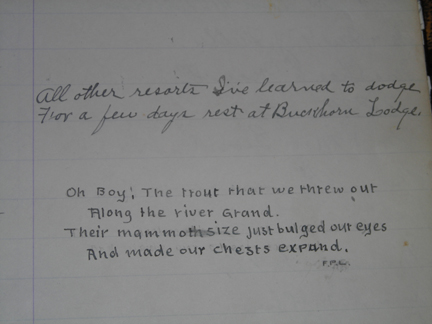 All other resorts I've learned to dodge
For a few days rest at Buckhorn Lodge.
Oh Boy! The trout that we threw out
Along the river Grand.
Their mammoth size just bulged our eyes
And made our chests expand.